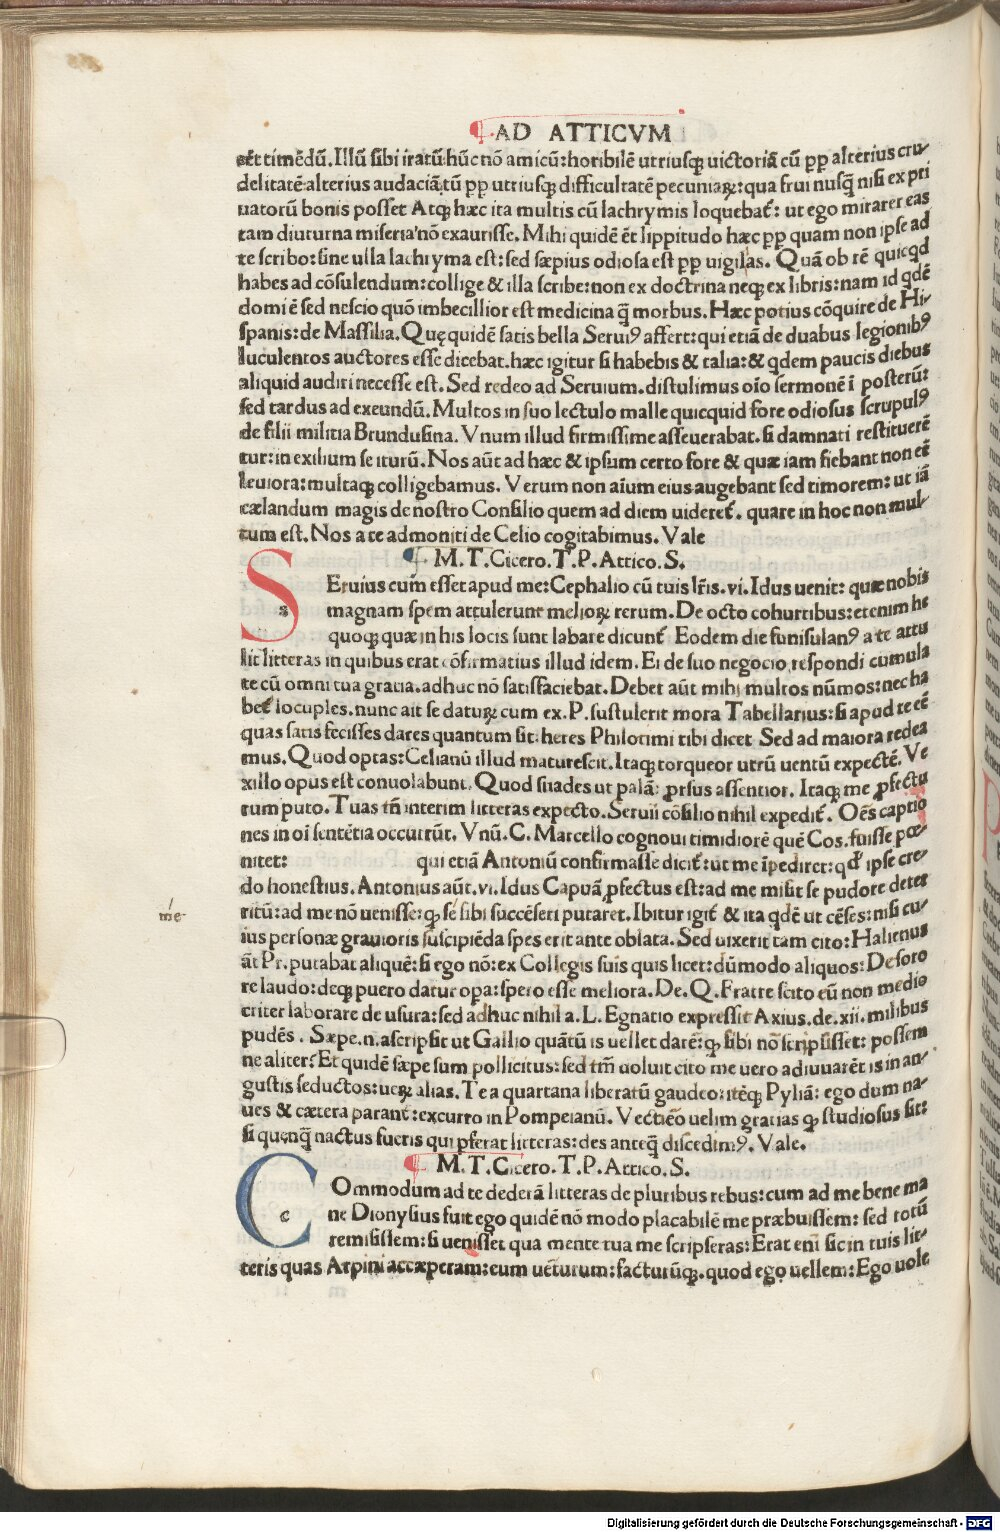 AD ATTICVM
eēt timēdū. Illū sibi iratū: hūc nō amicū: horibilē utriusqꝫ uictoriā cū ꝓꝑ alterius cru-
delitatē: alterius audaciā, tū ꝓꝑ utriusqꝫ difficultatē pecuniaꝝ: qua frui nusq̄ nisi ex pri
uatorū bonis posset Atqꝫ hæc ita multis cū lachrymis loquebat̄: ut ego mirarer eas
tam diuturna miseria nō exaurisse. Mihi quidē ēt lippitudo hæc ꝓꝑ quam non ipse ad
te scribo: sine ulla lachryma est: sed sæpius odiosa est ꝓꝑ uigilias. Quā ob rē quicqd
habes ad cōsulendum: collige & illa scribe: non ex doctrina neqꝫ ex libris: nam id qdē
domi ē sed nescio quō imbecillior est medicina q̄ morbus. Hæc potius cōquire de Hi-
spanis: de Massilia. Quę quidē satis bella Seruiꝰ affert: qui etiā de duabus legionibꝰ
luculentos auctores esse dicebat. hæc igitur si habebis & talia: & qdem paucis diebus
aliquid audiri necesse est. Sed redeo ad Seruium. distulimus oīo sermonē ī posterū:
sed tardus ad exeundū. Multos in suo lectulo malle quicquid fore odiosus scrupulꝰ
de filii militia Brundusina. Vnum illud firmissime asseuerabat. si damnati restituerē
tur: in exilium se iturū. Nos aūt ad hæc & ipsum certo fore & quæ iam fiebant non eē
leuiora: multaqꝫ colligebamus. Verum non aīum eius augebant sed timorem: ut iā
cælandum magis de nostro Consilio quem ad diem uideret̄. quare in hoc non mul-
tum est. Nos a te admoniti de Celio cogitabimus. Vale
M. T. Cicero. T. P. Attico. S.
SEruius cum esset apud me: Cephalio cū tuis lr̄is. vi. Idus uenit: quæ nobis
magnam spem attulerunt melioꝝ rerum. De octo cohurtibus: etenim he
quoqꝫ quæ in his locis sunt labare dicunt̄ Eodem die funisulanꝰ a te attu
lit litteras in quibus erat cōfirmatius illud idem. Ei de suo negocio respondi cumula
te cū omni tua gratia. adhuc nō satisfaciebat. Debet aūt mihi multos nūmos: nec ha
bet̄ locuples. nunc ait se datuꝝ cum ex. P. sustulerit mora Tabellarius: si apud te eē
quas satis fecisses dares quantum sit: heres Philotimi tibi dicet Sed ad maiora redea
mus. Quod optas: Celianū illud maturescit. Itaqꝫ torqueor utrū uentū expectē. Ve
xillo opus est conuolabunt. Quod suades ut palā: ꝓrsus assentior. Itaqꝫ me ꝓfectu
rum puto. Tuas tn̄ interim litteras expecto. Seruii cōsilio nihil expedit̄. Oēs captio
nes in oī sentētia occurrūt. Vnū. C. Marcello cognoui timidiorē quē Cos. fuisse pœ-
nitet: qui etiā Antoniū confirmasse dicit̄: ut me īpediret: qđ ipse cre-
do honestius. Antonius aūt. vi. Idus Capuā ꝓfectus est: ad me misit se pudore deter
ritū: ad me nō uenisse: qꝫ se sibi succēseri putaret. Ibitur igit̄ & ita qdē ut cēses: nisi cu-
me-
ius personæ grauioris suscipiēda spes erit ante oblata. Sed uixerit tam cito: Halienus
āt Pr. putabat aliquē: si ego nō: ex Collegis suis quis licet: dūmodo aliquos: De soro
re laudo: deqꝫ puero datur oꝑa: spero esse meliora. De. Q. Fratre scito eū non medio
criter laborare de usura: sed adhuc nihil a. L. Egnatio expressit Axius. de. xii. milibus
pudēs. Sæpe. n. ascripsit ut Gallio quātū is uellet darē: qꝫ sibi nō scripsisset: possem
ne aliter? Et quidē sæpe sum pollicitus: sed tm̄ uoluit cito me uero adiuuarēt is in an-
gustis seductos: ueꝝ alias. Te a quartana liberatū gaudeo: itēqꝫ Pyliā: ego dum na-
ues & cætera parant̄: excurro in Pompeianū. Vectieō uelim gratias qꝫ studiosus sit:
si quenq̄ nactus fueris qui ꝑferat litteras: des anteq̄ discedimꝰ. Vale.
M. T. Cicero. T. P. Attico. S.
COmmodum ad te dederā litteras de pluribus rebus: cum ad me bene ma
ne Dionysius fuit ego quidē nō modo placabilē me præbuissem: sed totū
remisissem: si uenisset qua mente tua me scripseras: Erat eni sic in tuis lit-
teris quas Arpini accæperam: eum uēturum: facturūqꝫ. quod ego uellem: Ego uole
Digitalisierung gefördert durch die Deutsche Forschungsgemeinschaft - DFG